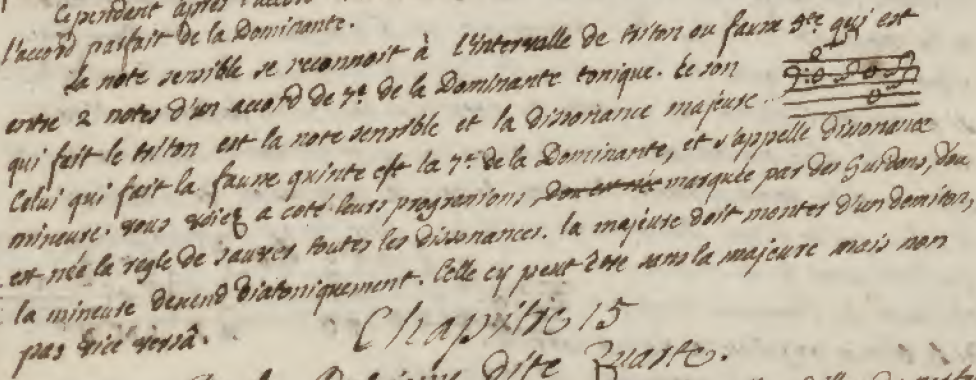 Cependant après l'accord
l'accord parfait de la Dominante.
La note sensible se reconnoit à l'intervalle de triton ou fausse 5te qui est
entre 2 notes d'un accord de 7e. de la Dominante tonique. Le son
qui fait le triton est la note sensible et la dissonance majeure.
Celui qui fait la fausse quinte est la 7e. de la Dominante, et s'appelle dissonance
mineure. vous voiez a coté leurs progressions, marquée par des Guidons, d'ou
est née la regle de sauver toutes les dissonances. la majeure doit monter d'un demiton,
la mineure descend diatoniquement. Celle cy peut être sans la majeure mais non
pas vice versâ.
Chapitre 15
dite Quarte.